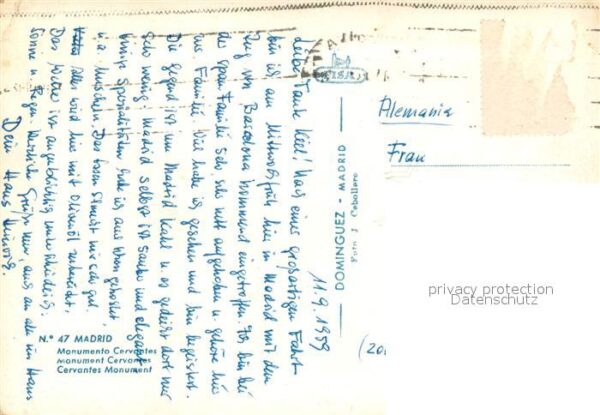 11.9.1959
Liebe Tante Keil! Nach einer großartigen Fahrt
bin ich am Mittwoch früh hier in Madrid mit dem
Zug von Barcelona kommend eingetroffen. Ich bin bei
der span. Familie sehr sehr nett aufgehoben u. gehöre hier
zur Familie. Viel habe ich gesehen und bin begeistert.
Die Gegend ist um Madrid kahl u. es gedeiht dort nur
sehr wenig. Madrid selbst ist sauber und elegant.
Einige Spezialitäten habe ich auch schon gekostet,
u.a. Muscheln. Das Essen schmeckt mir sehr gut.
Alles wird hier mit Olivenöl zubereitet.
Das Wetter ist augenblicklich unterschiedlich,
Sonne u. Regen. Herzliche Grüße nun, auch an alle im Haus
Dein Hans
Alemania
Frau
(20
DOMINGUEZ - MADRID
Foto J. Caballero
N.º 47 MADRID
Monumento Cervantes
Monument Cervantes
Cervantes Monument
privacy protection
Datenschutz